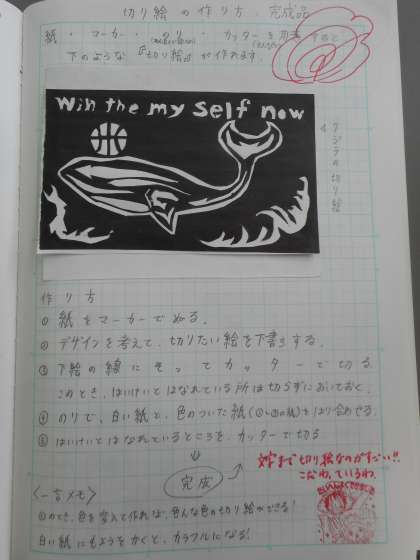 切り絵の作り方、完成品
紙・マーカー・のり・カッターを用意すると
下のような『切り絵』が作れます。
Win the my self now
クジラの切り絵
作り方
① 紙をマーカーでぬる。
② デザインを考えて、切りたい絵を下書きする。
③ 下絵の線にそってカッターで切る。
このとき、はいけいとはなれている所は切らずにおいておく。
④ のりで、白い紙と、色のついた紙(①〜③の紙)をはり合わせる。
⑤ はいけいとはなれているところを、カッターで切る
↓
完成
文字まで切り絵なのがすごい!!
こだわっているわ
〈一言メモ〉
①のとき、色を変えて作れば、色んな色の切り絵ができる!
白い紙にもようをかくと、カラフルになる!